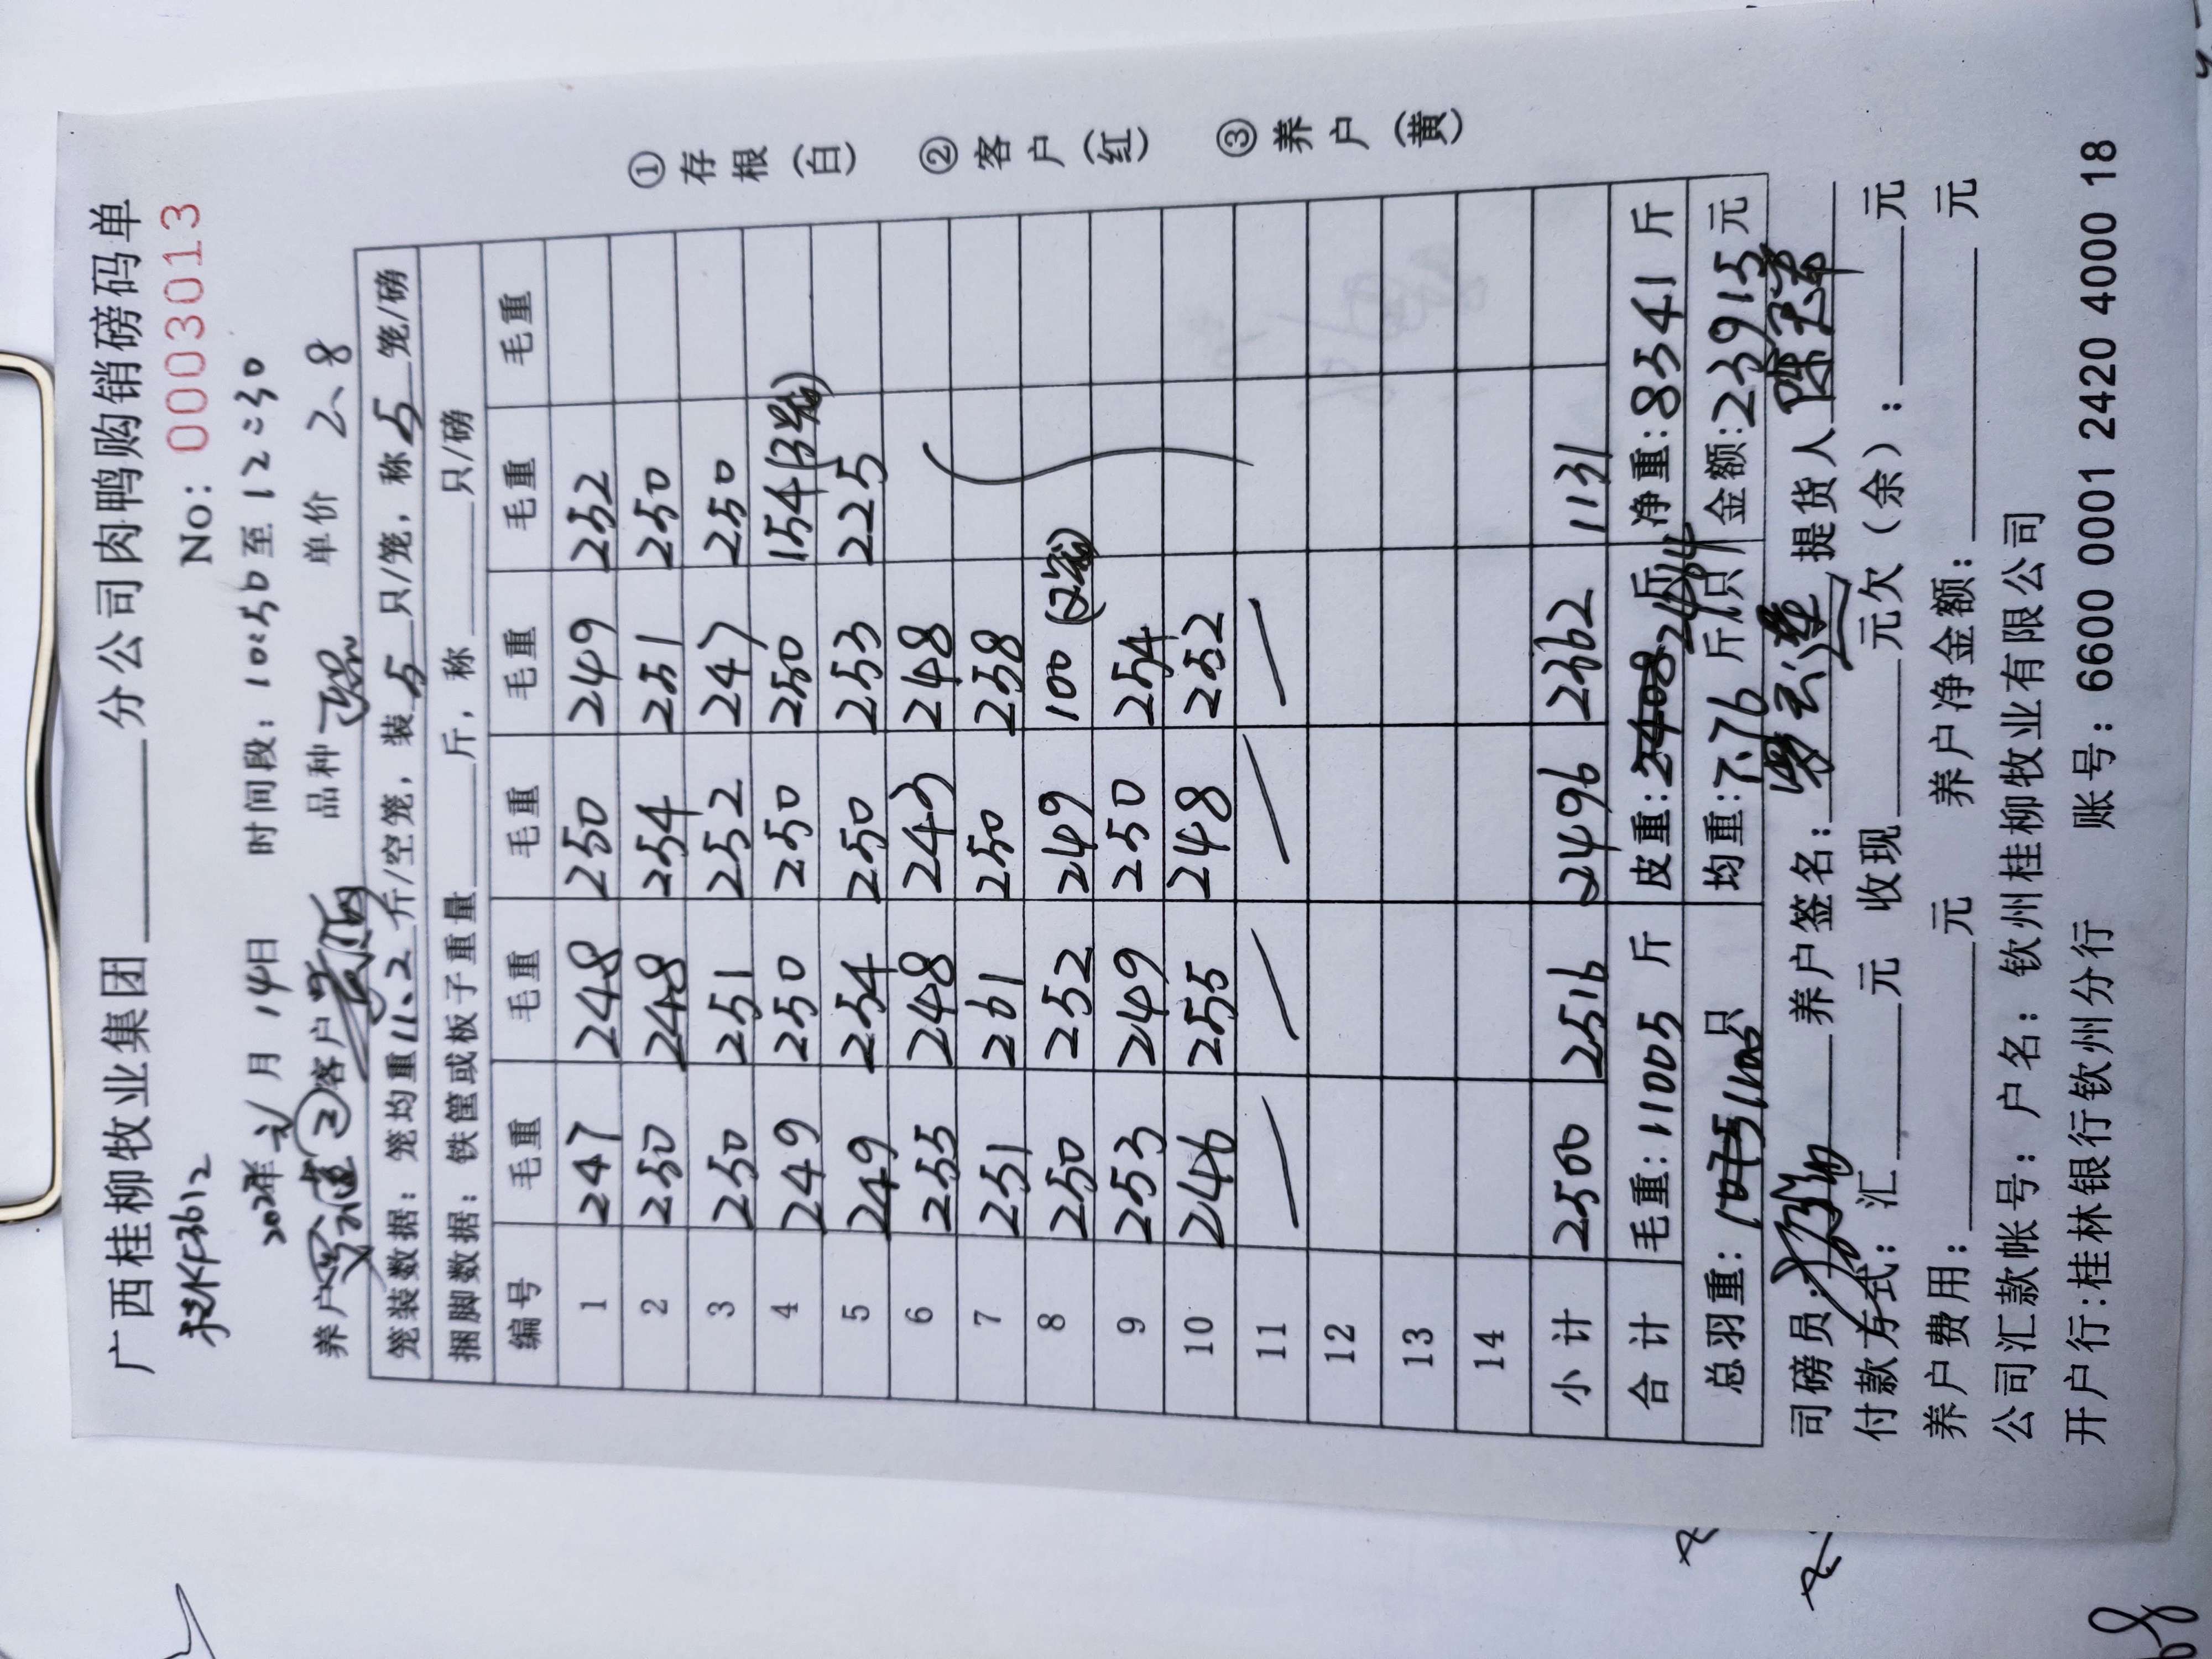 广西桂柳牧业集团______分公司肉鸭购销磅码单
桂KF3612
No: 00030​13
年 月 14日 时间段: 10:50至12:30
养户 客户 品种 单价 2、8
笼装数据: 笼均重11.2斤/空笼, 装5只/笼, 称5笼/磅
捆脚数据: 铁筐或板子重量____斤, 称____只/磅
编号 毛重 毛重 毛重 毛重 毛重 毛重
1 247 248 250 249 252
2 250 248 254 251 250
3 250 251 252 247 250
4 249 250 250 250 154(13笼)
5 249 254 250 253 225
6 255 248 243 248
7 251 261 250 258
8 250 252 249 100(2笼)
9 253 249 250 254
10 246 255 248 252
11
12
13
14
小计 2500 2516 2496 2362 1131
合计 毛重: 11005 斤 皮重: 2464 斤 净重: 8541 斤
总羽重: 1100只 均重: 7.76 斤/只 金额: 23915 元
司磅员: 养户签名: 提货人
付款方式: 汇______元 收现______元欠(余):______元
养户费用:______元 养户净金额:______元
公司汇款帐号: 户名: 钦州桂柳牧业有限公司
开户行:桂林银行钦州分行 账号: 6600 0001 2420 4000 18
① 存根(白) ② 客户(红) ③ 养户(黄)